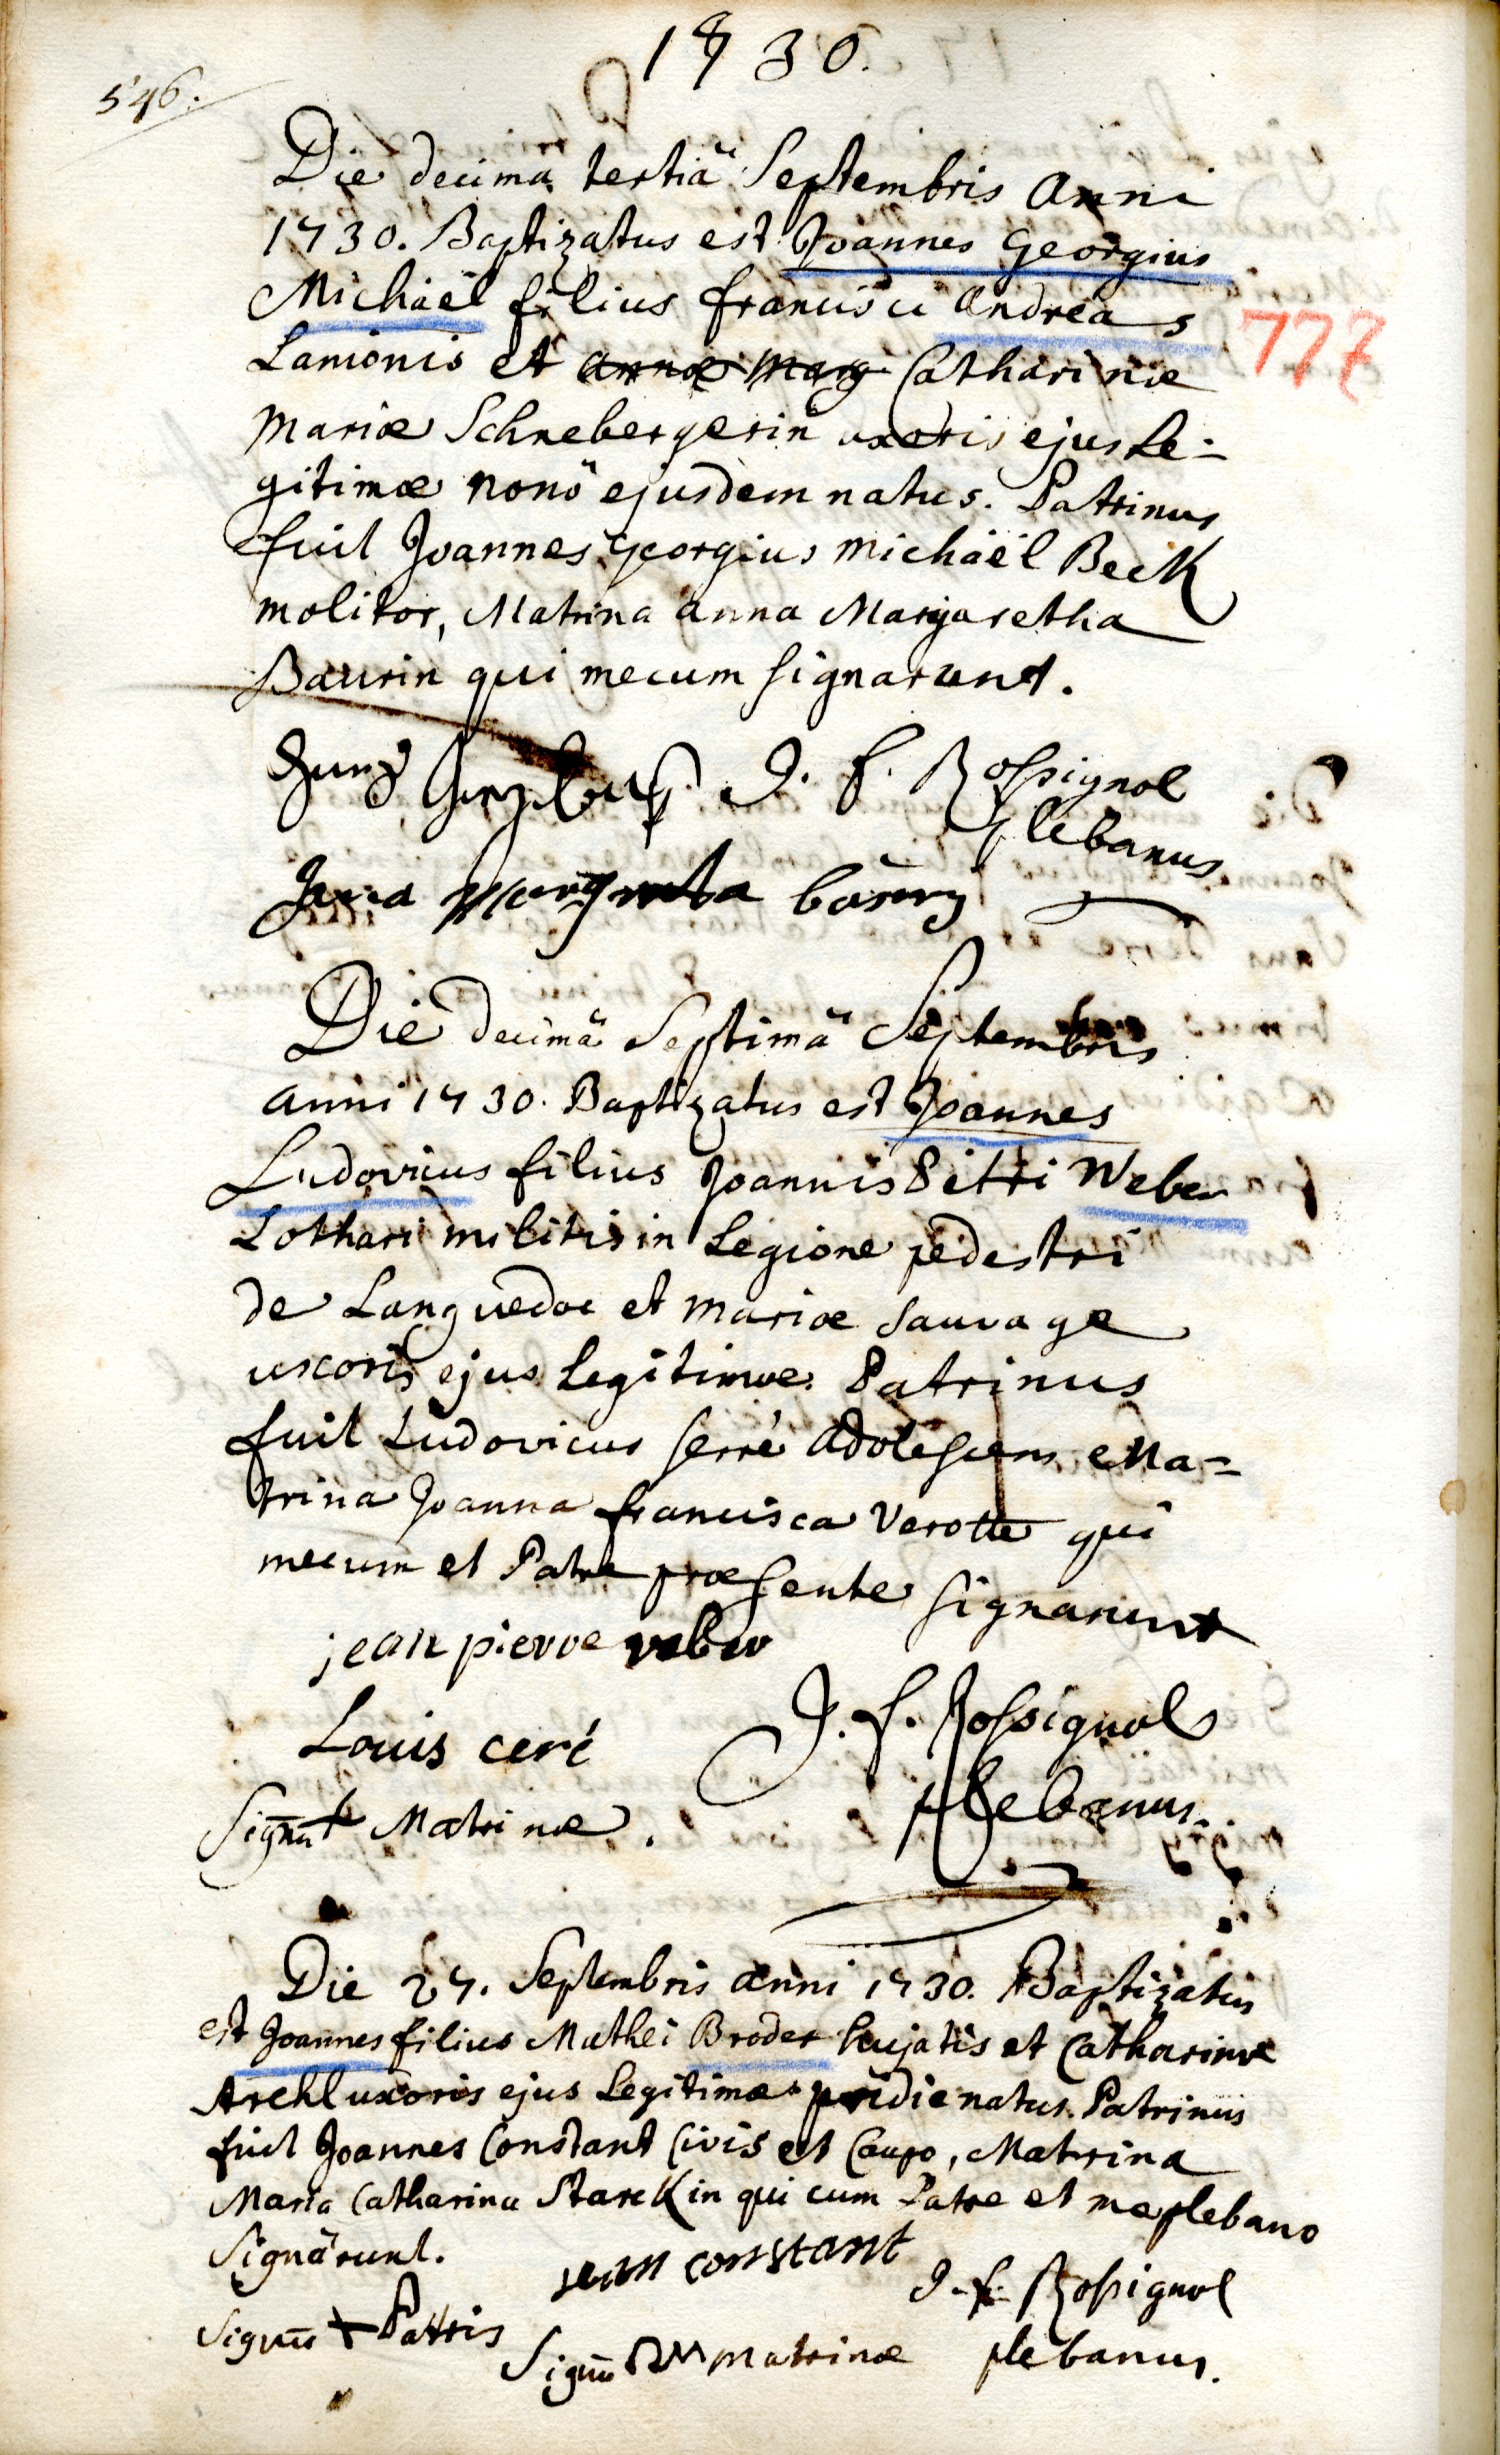 1730.
546.
Die decimâ tertiâ Septembris anni
1730. Baptizatus est Joannes Georgius
Michaël filius francisci andreas
777
Lanionis et annæ marg Catharinæ
mariæ Schnebergerin uxoris ejus Le=
gitimæ nonô ejusdem natus. Patrinus
fuit Joannes georgius michaël Beck
molitor, Matrina anna Margaretha
Baurin qui mecum signarunt.
J. f. Rossignol
plebanus
Decimâ Septimâ Septembris
anni 1730. Baptizatus est Joannes
Ludovicus filius Joannis Petri Weber
Lothari militis in Legione pedestri
de Languedoc et mariæ sauvage
uxoris ejus Legitimæ. Patrinus
fuit Ludovicus serré adolescens Ma=
trina Joanna francisca Verotte qui
mecum et Patre præsente signarunt
jean pierre veber
Louis ceré
J. f. Rossignol
Signũ + Matrinæ.
plebanus.
Die 27. Septembris anni 1730. Baptizatus
est Joannes filius Mathei Broder hujatis et Catharinæ
Arehl uxoris ejus Legitimæ pridie natus. Patrinus
fuit Joannes Constant Civis et Caupo, Matrina
Maria Catharina Starckin qui cum Patre et me plebano
Signârunt.
jean constant
J. f. Rossignol
Signũ + Patris
Signũ matrinæ
plebanus.